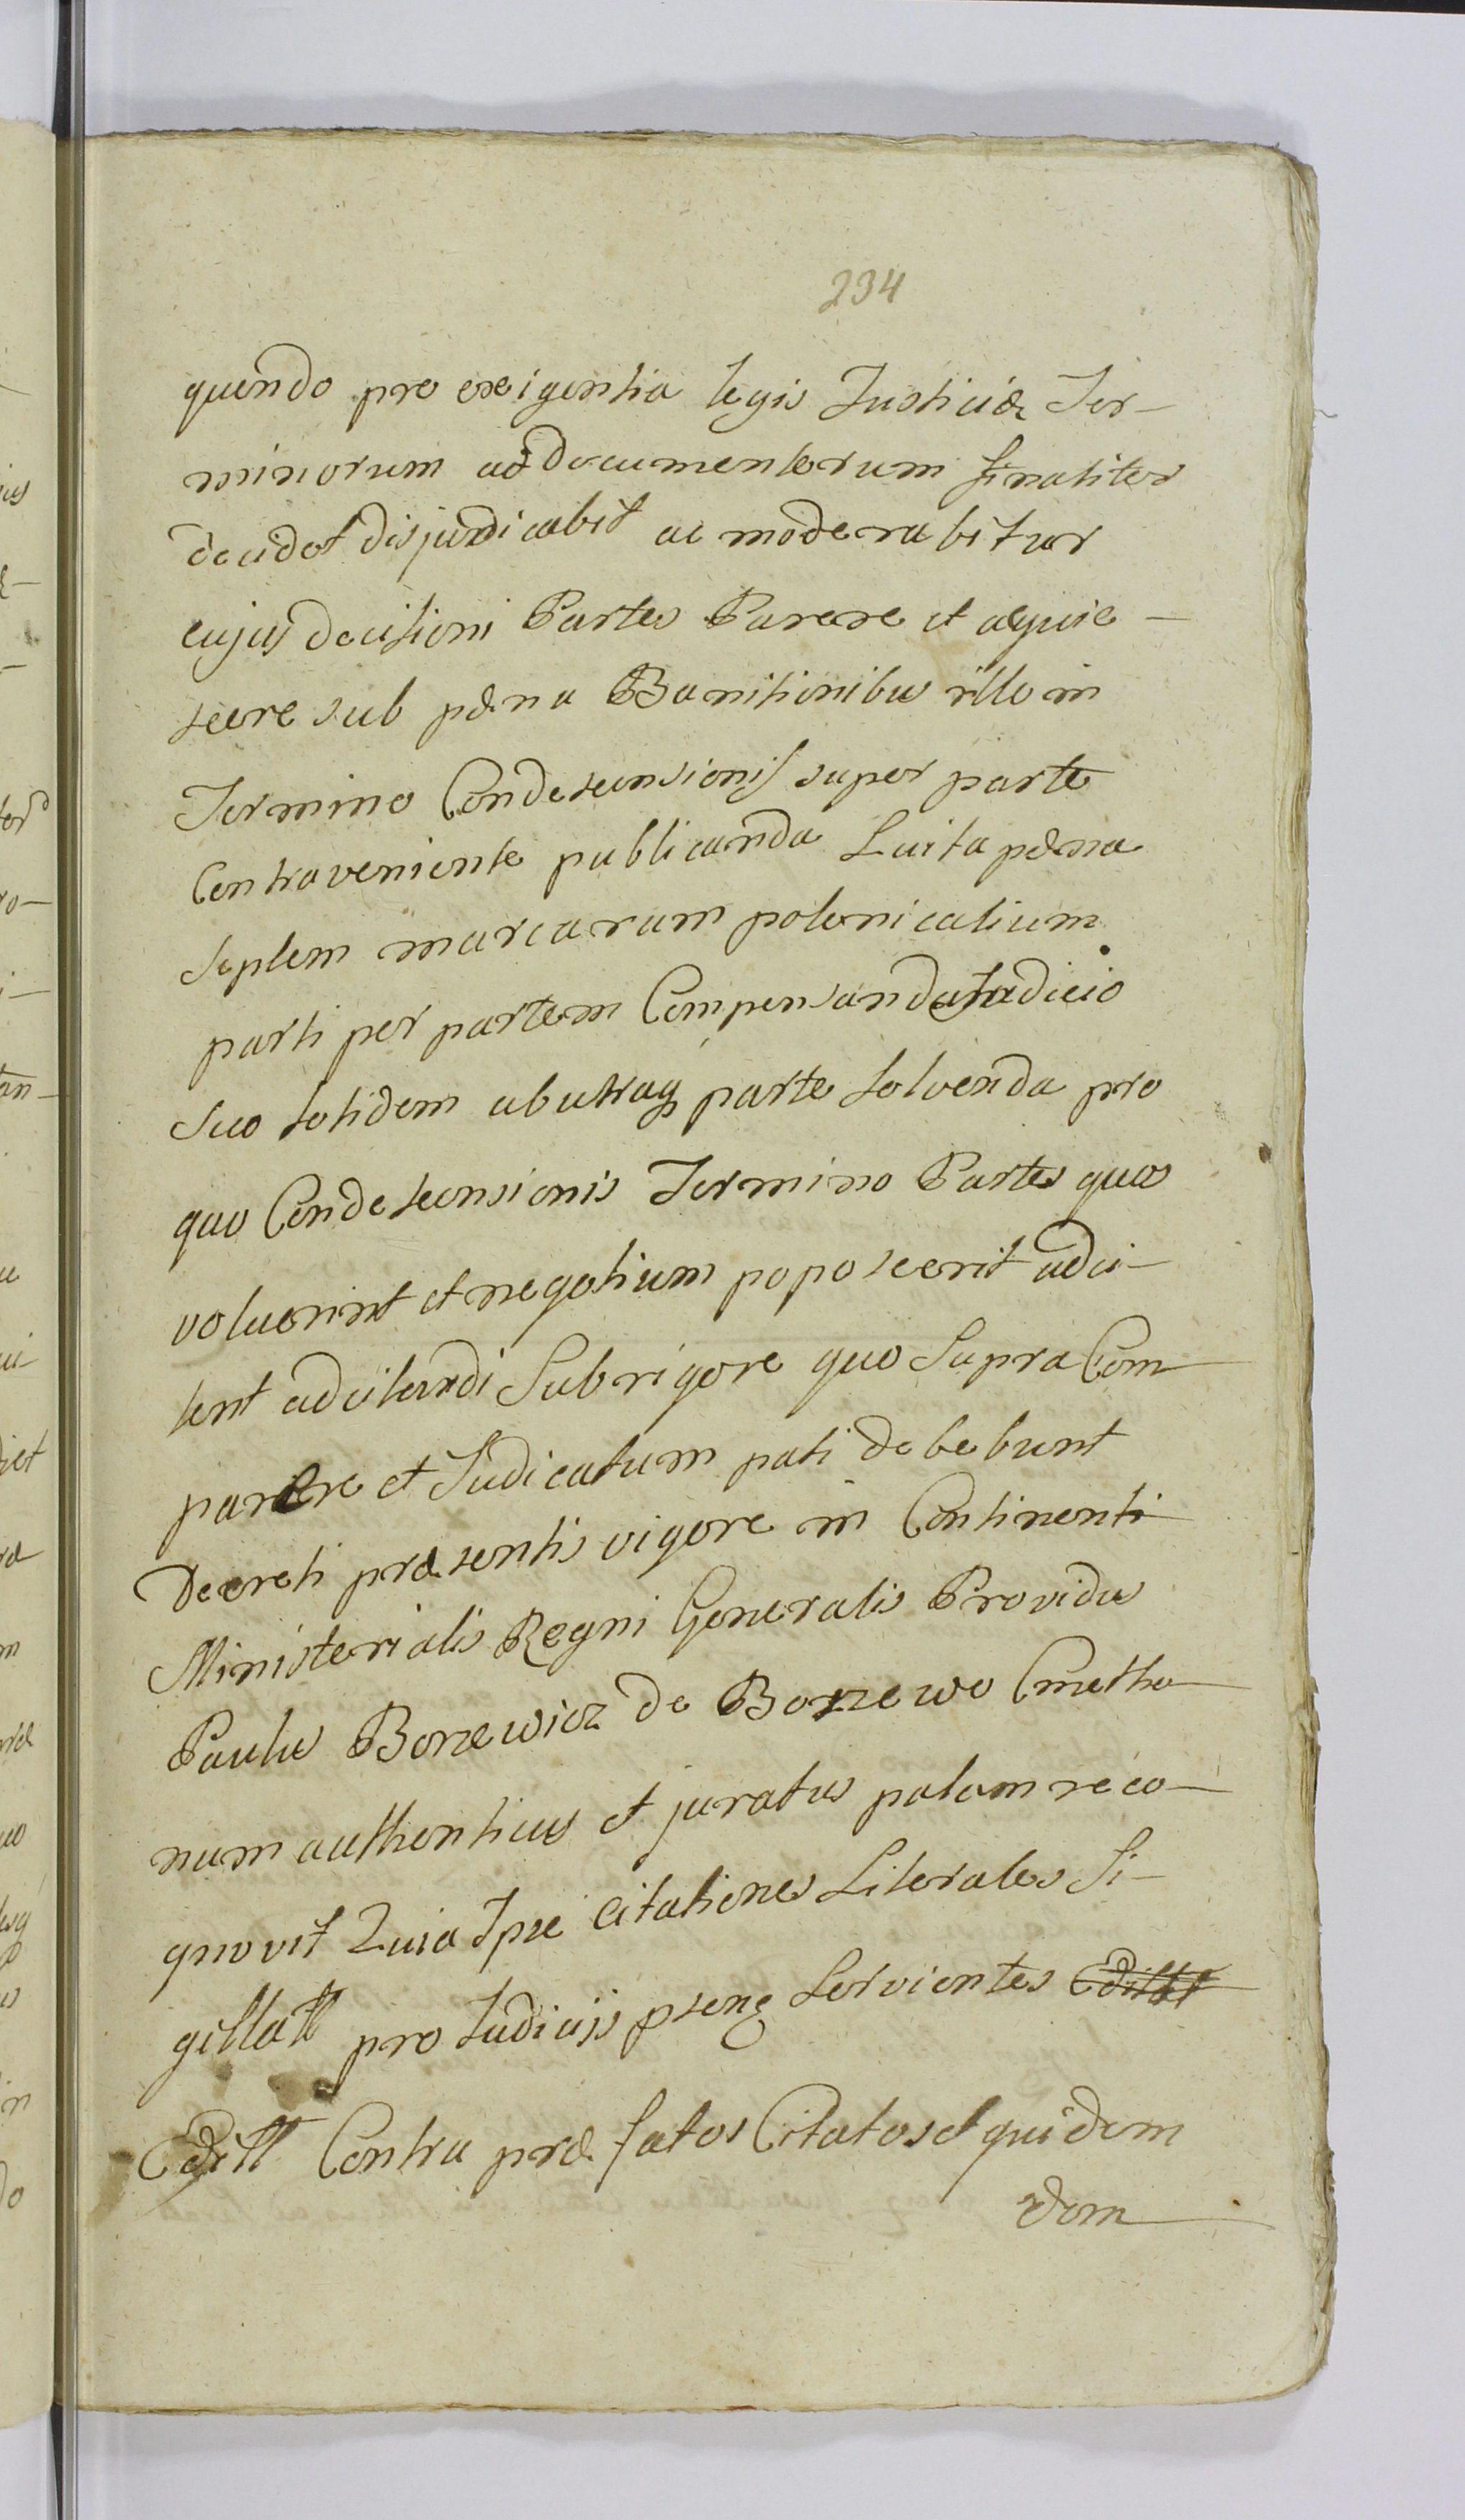 234
quendo pro exigentia legis Justiciæ Ter-
minorum ac documentorum finaliter
decidet disjudicabit ac moderabitur
cujus decisioni Partes Parere et acquie-
scere sub pæna Banitionibus illo in
Termino Condescensionis super parte
Contraveniente publicanda Luita pæna
septem marcarum polonicalium
parti per partem Compensanda Judicio
suo totidem ab utraq parte solvenda pro
quo Condescensionis Termino Partes quas
voluerint et negotium poposcerit adci-
tent adcitandi Sub rigore quo Supra Com-
parere et Judicatum pati debebunt
Decreti præsentis vigore in Continenti
Ministerialis Regni Generalis Providus
Paulus Borzewicz de Borzewo Cmetho-
num authenticus et juratus palam reco-
gnovit Quia Ipse Citationes Literales Si-
gillatt pro Judicijs psens servientes
Editt Contra præfatos Citatos et quidem
Dom